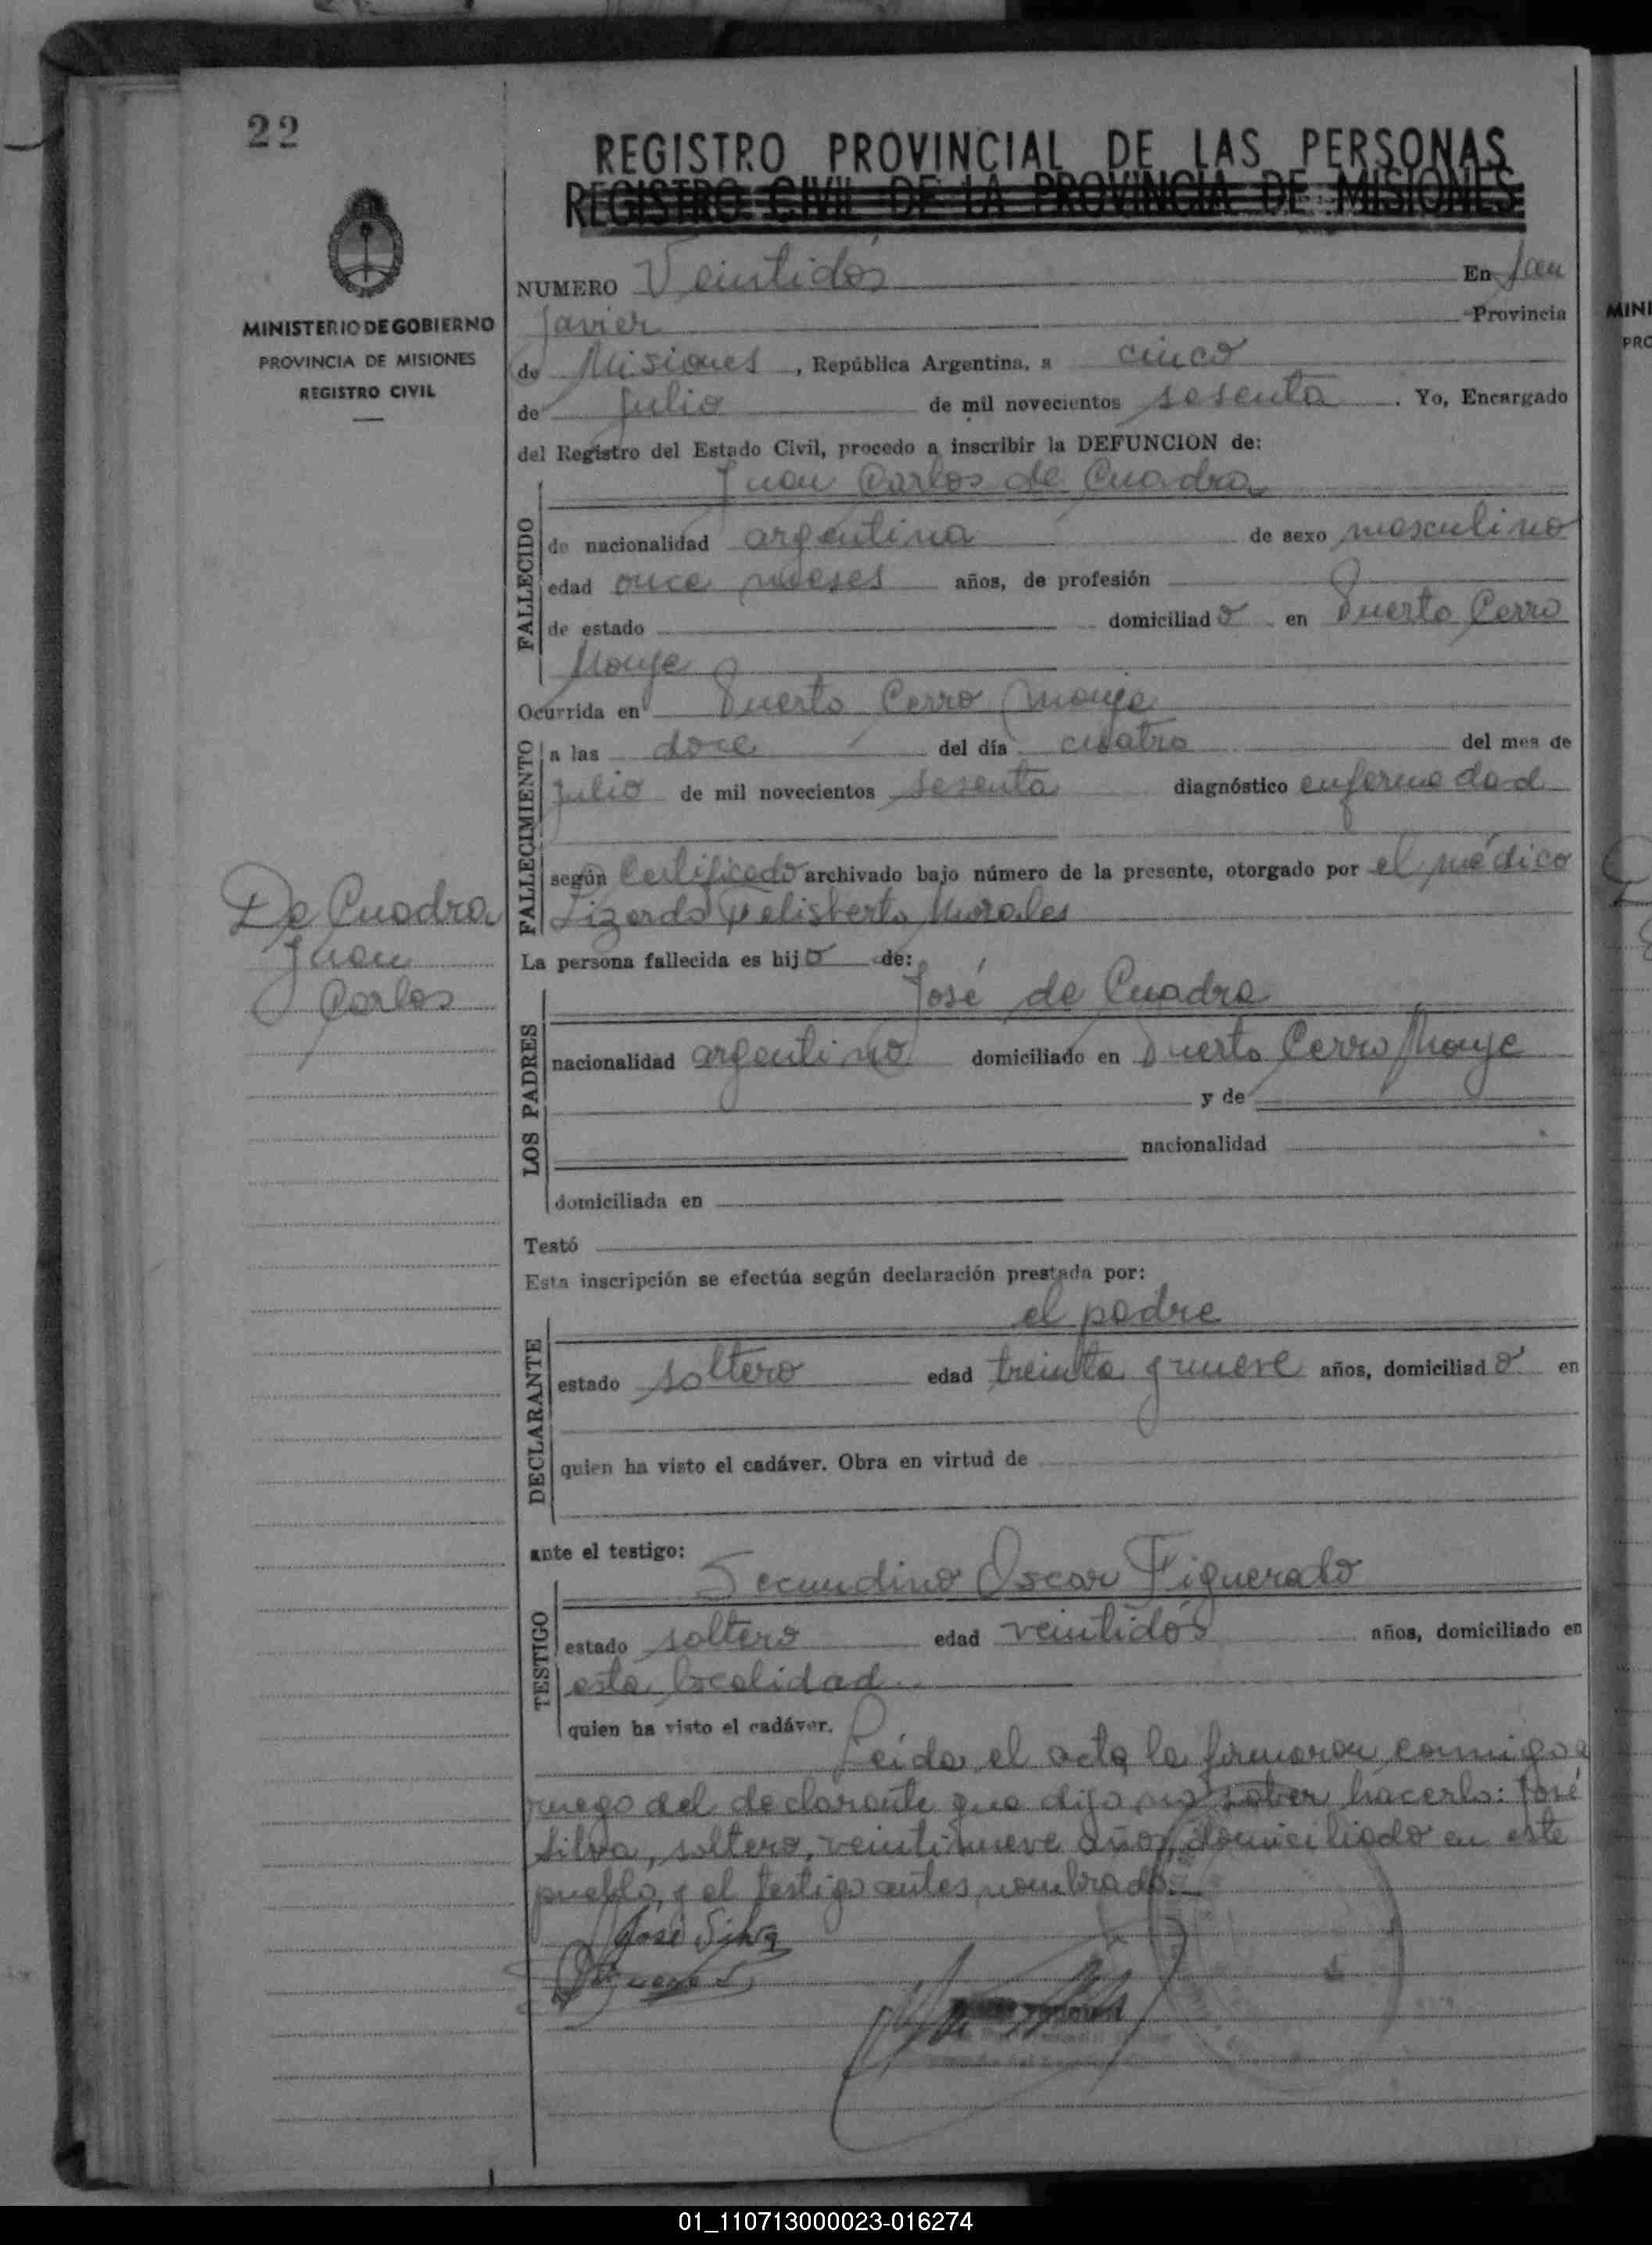 22
REGISTRO PROVINCIAL DE LAS PERSONAS
REGISTRO CIVIL DE LA PROVINCIA DE MISIONES
MINISTERIO DE GOBIERNO
PROVINCIA DE MISIONES
REGISTRO CIVIL
NUMERO Veintidós En San
Javier Provincia
de Misiones, República Argentina, a cinco
de julio de mil novecientos sesenta. Yo, Encargado
del Registro del Estado Civil, procedo a inscribir la DEFUNCION de:
Juan Carlos de Cuadra
FALLECIDO
de nacionalidad argentina de sexo masculino
edad once meses años, de profesión
de estado domiciliado en Puerto Cerro
Monje
Ocurrida en Puerto Cerro Monje
FALLECIMIENTO
a las doce del día cuatro del mes de
julio de mil novecientos sesenta diagnóstico enfermedad
según Certificado archivado bajo número de la presente, otorgado por el médico
Lizardo Felisberto Morales
De Cuadra
Juan
Carlos
La persona fallecida es hijo de:
José de Cuadra
LOS PADRES
nacionalidad argentino domiciliado en Puerto Cerro Monje
y de
nacionalidad
domiciliada en
Testó
Esta inscripción se efectúa según declaración prestada por:
el padre
DECLARANTE
estado soltero edad treinta y nueve años, domiciliado en
quien ha visto el cadáver. Obra en virtud de
ante el testigo:
Secundino Oscar Figueredo
TESTIGO
estado soltero edad veintidós años, domiciliado en
esta localidad
quien ha visto el cadáver.
Leida el acta la firmaron conmigo a
ruego del declarante que dijo no saber hacerlo: José
Silva, soltero, veintinueve años, domiciliado en este
pueblo, y el testigo antes nombrado.
José Silva
MINI
PRO
01_110713000023-016274